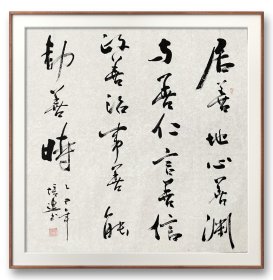 居善地心善渊
与善仁言善信
政善治事善能
動善時